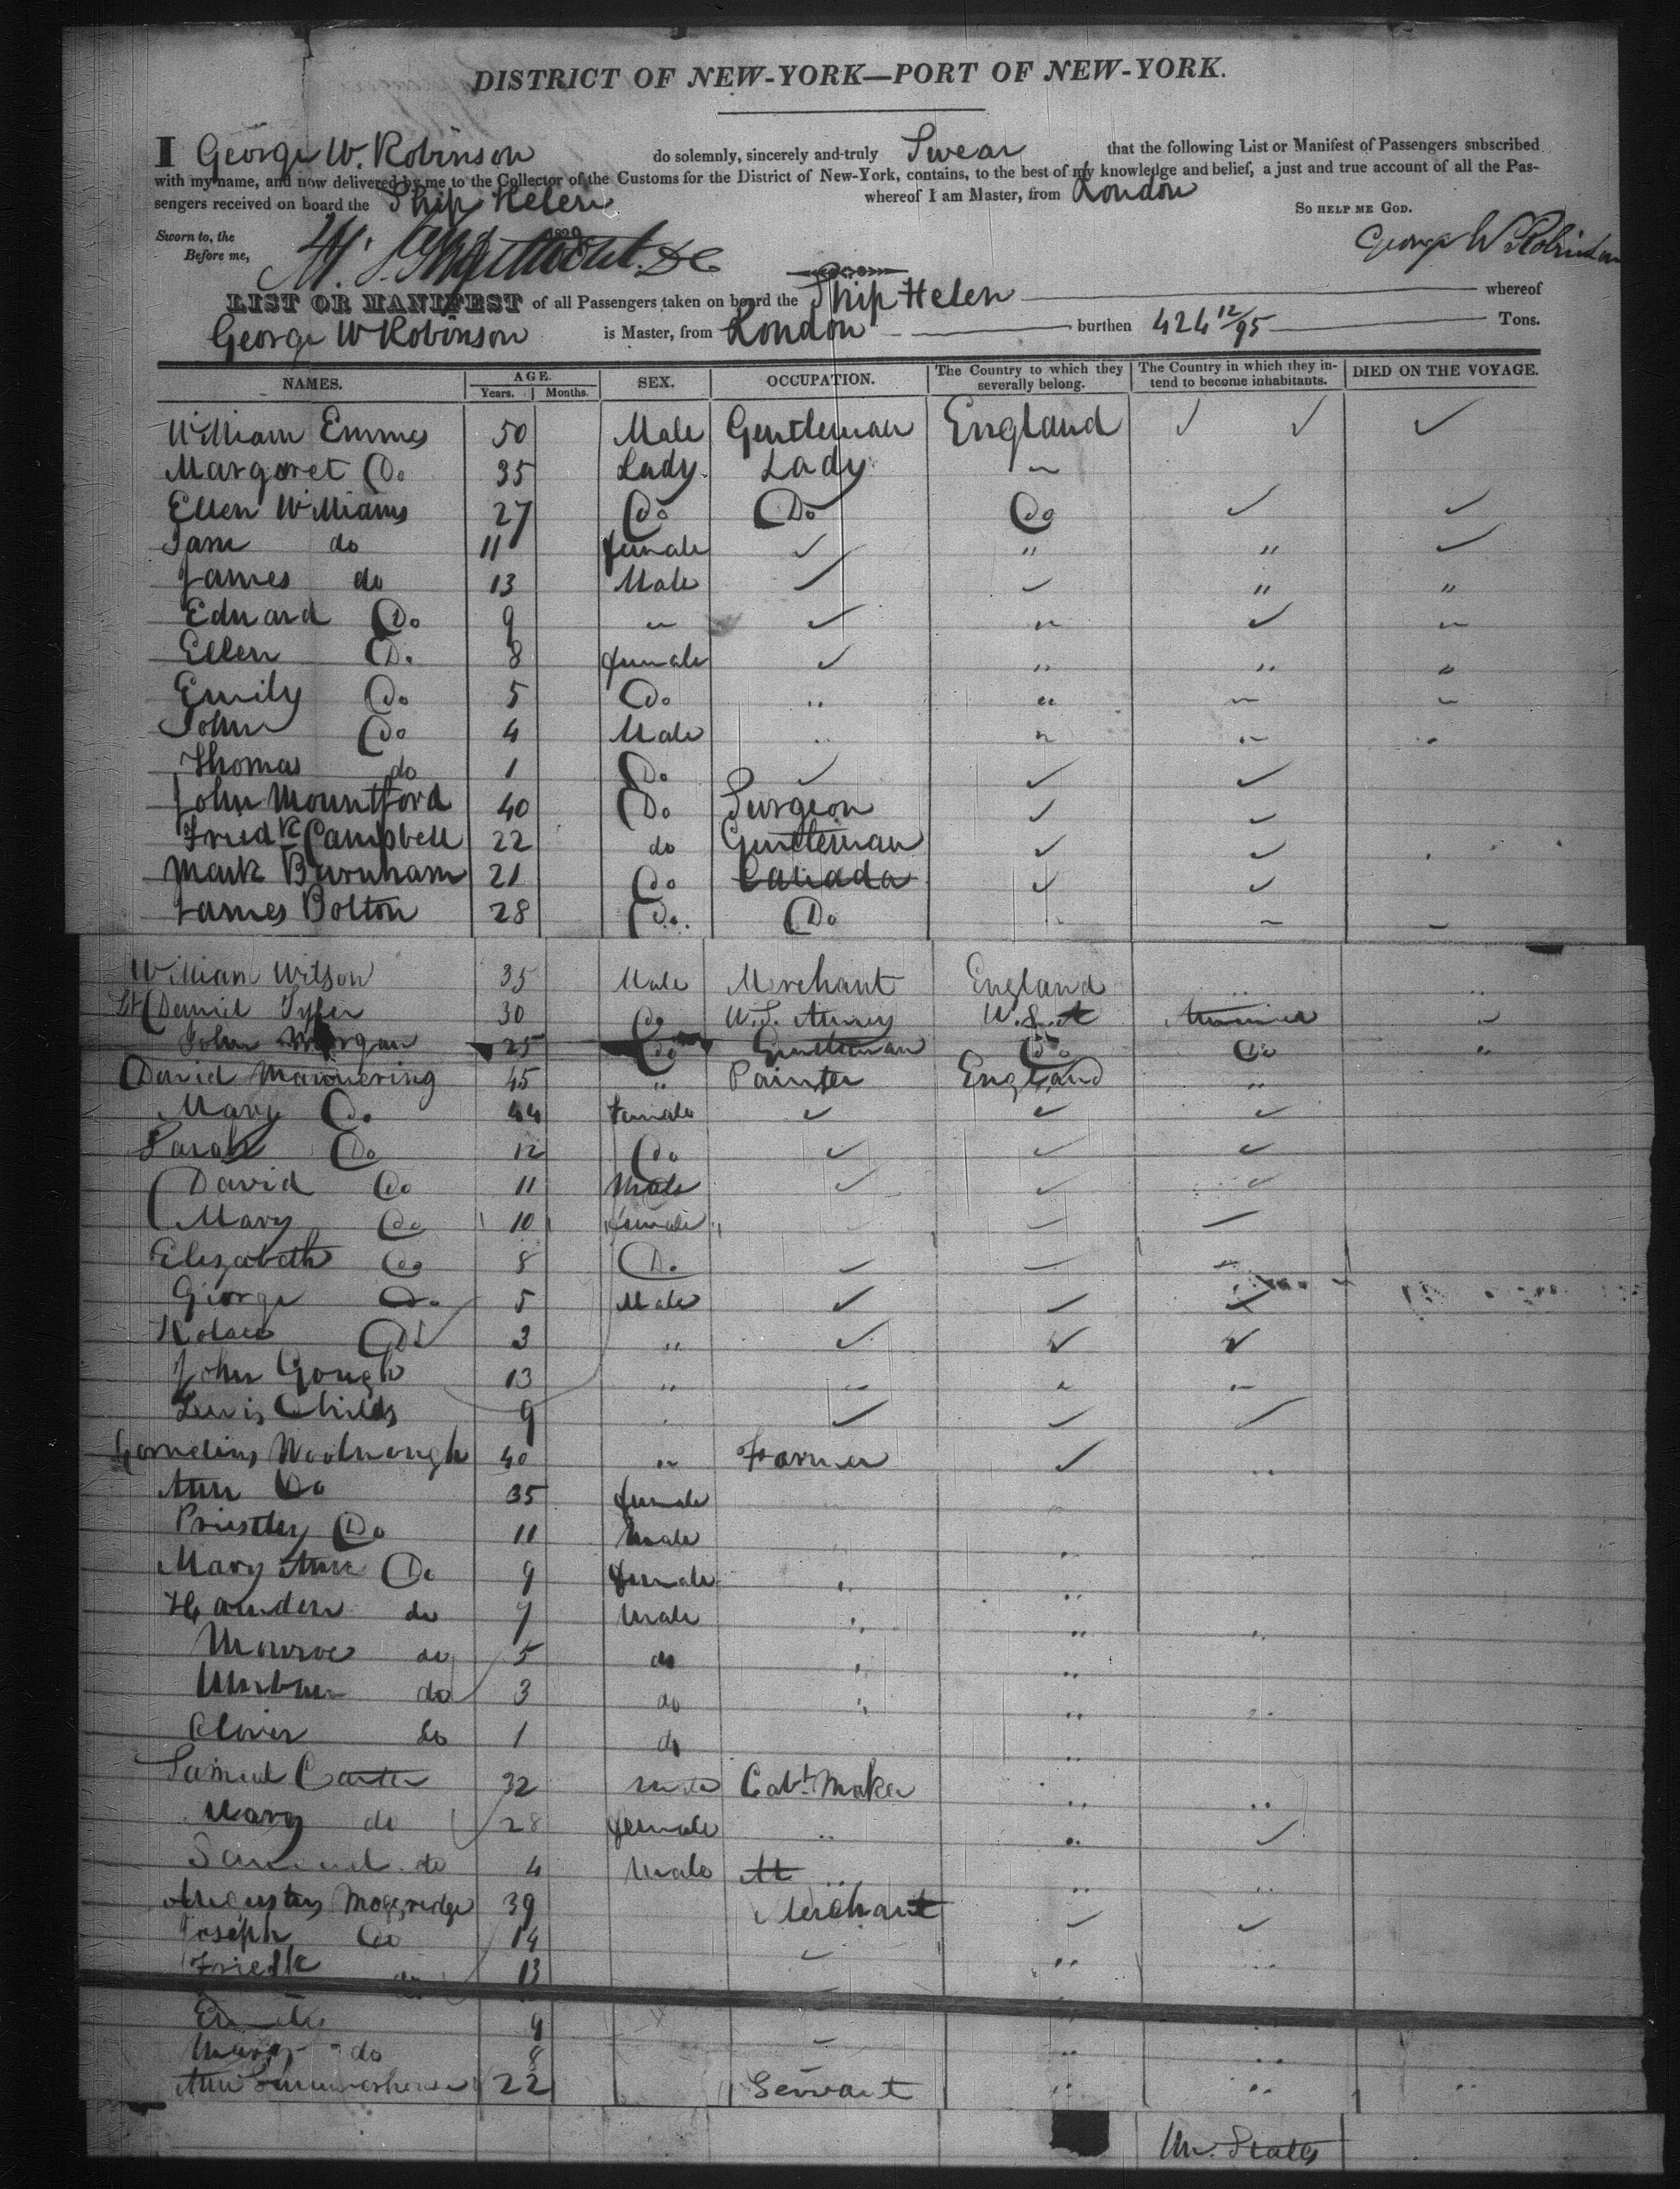 DISTRICT OF NEW-YORK—PORT OF NEW-YORK.
I George W. Robinson do solemnly, sincerely and truly Swear that the following List or Manifest of Passengers subscribed
with my name, and now delivered by me to the Collector of the Customs for the District of New-York, contains, to the best of my knowledge and belief, a just and true account of all the Pas-
sengers received on board the Ship Helen whereof I am Master, from London
So help me God.
Sworn to, the 1829
Before me,
George W Robinson
LIST OR MANIFEST of all Passengers taken on board the Ship Helen whereof
George W Robinson is Master, from London burthen 424 12/95 Tons.
NAMES. AGE. Years. Months. SEX. OCCUPATION. The Country to which they severally belong. The Country in which they intend to become inhabitants. DIED ON THE VOYAGE.
William Emmes 50 Male Gentleman England ✓ ✓ ✓
Margaret Do 35 Lady Lady "
Ellen Williams 27 Do Do Do ✓ ✓
Jane do 11 female ✓ " " ✓
James do 13 Male ✓ ✓ " "
Edward Do 9 " ✓ " ✓ "
Ellen Do 8 female ✓ " " "
Emily Do 5 Do " " " "
John Do 4 Male " " " "
Thomas do 1 Do ✓ ✓ ✓
John Mountford 40 Do Surgeon ✓ ✓
Fredk Campbell 22 do Gentleman ✓ ✓
Mark Burnham 21 Do Canada ✓ ✓
James Bolton 28 Do. Do " " "
William Wilson 35 Male Merchant England " "
Lt Daniel Tyler 30 Do U.S. Army U.S. "
John Morgan 25 Do Gentleman Do Do "
David Mannering 45 " Painter England "
Mary Do 44 female ✓ ✓ ✓
Sarah Do 12 Do ✓ ✓ ✓
David Do 11 Male ✓ ✓ ✓
Mary Do 10 female
Elizabeth Do 8 Do ✓ "
George Do 5 Male ✓ ✓ ✓
Do 3 " ✓ ✓ ✓
John Gough 13 " " " "
Lewis Childs 9 ✓ ✓ ✓
Cornelius Woolnough 40 " Farmer ✓ "
Ann Do 35 female
Priestley Do 11 Male
Mary Ann Do 9 female " "
do 7 Male " " "
Monroe do 5 do " "
do 3 do " " "
Oliver do 1 do "
Samuel Carter 32 male Cabt Maker " "
Mary do 28 female " " ✓
Samuel do 4 Male " "
Augustus Moggridge 39 Merchant ✓ ✓
Joseph Do 14 ✓ " "
Fredk do 13
9
Mary do 8 " "
Ann 22 Servant " " "
Un. States